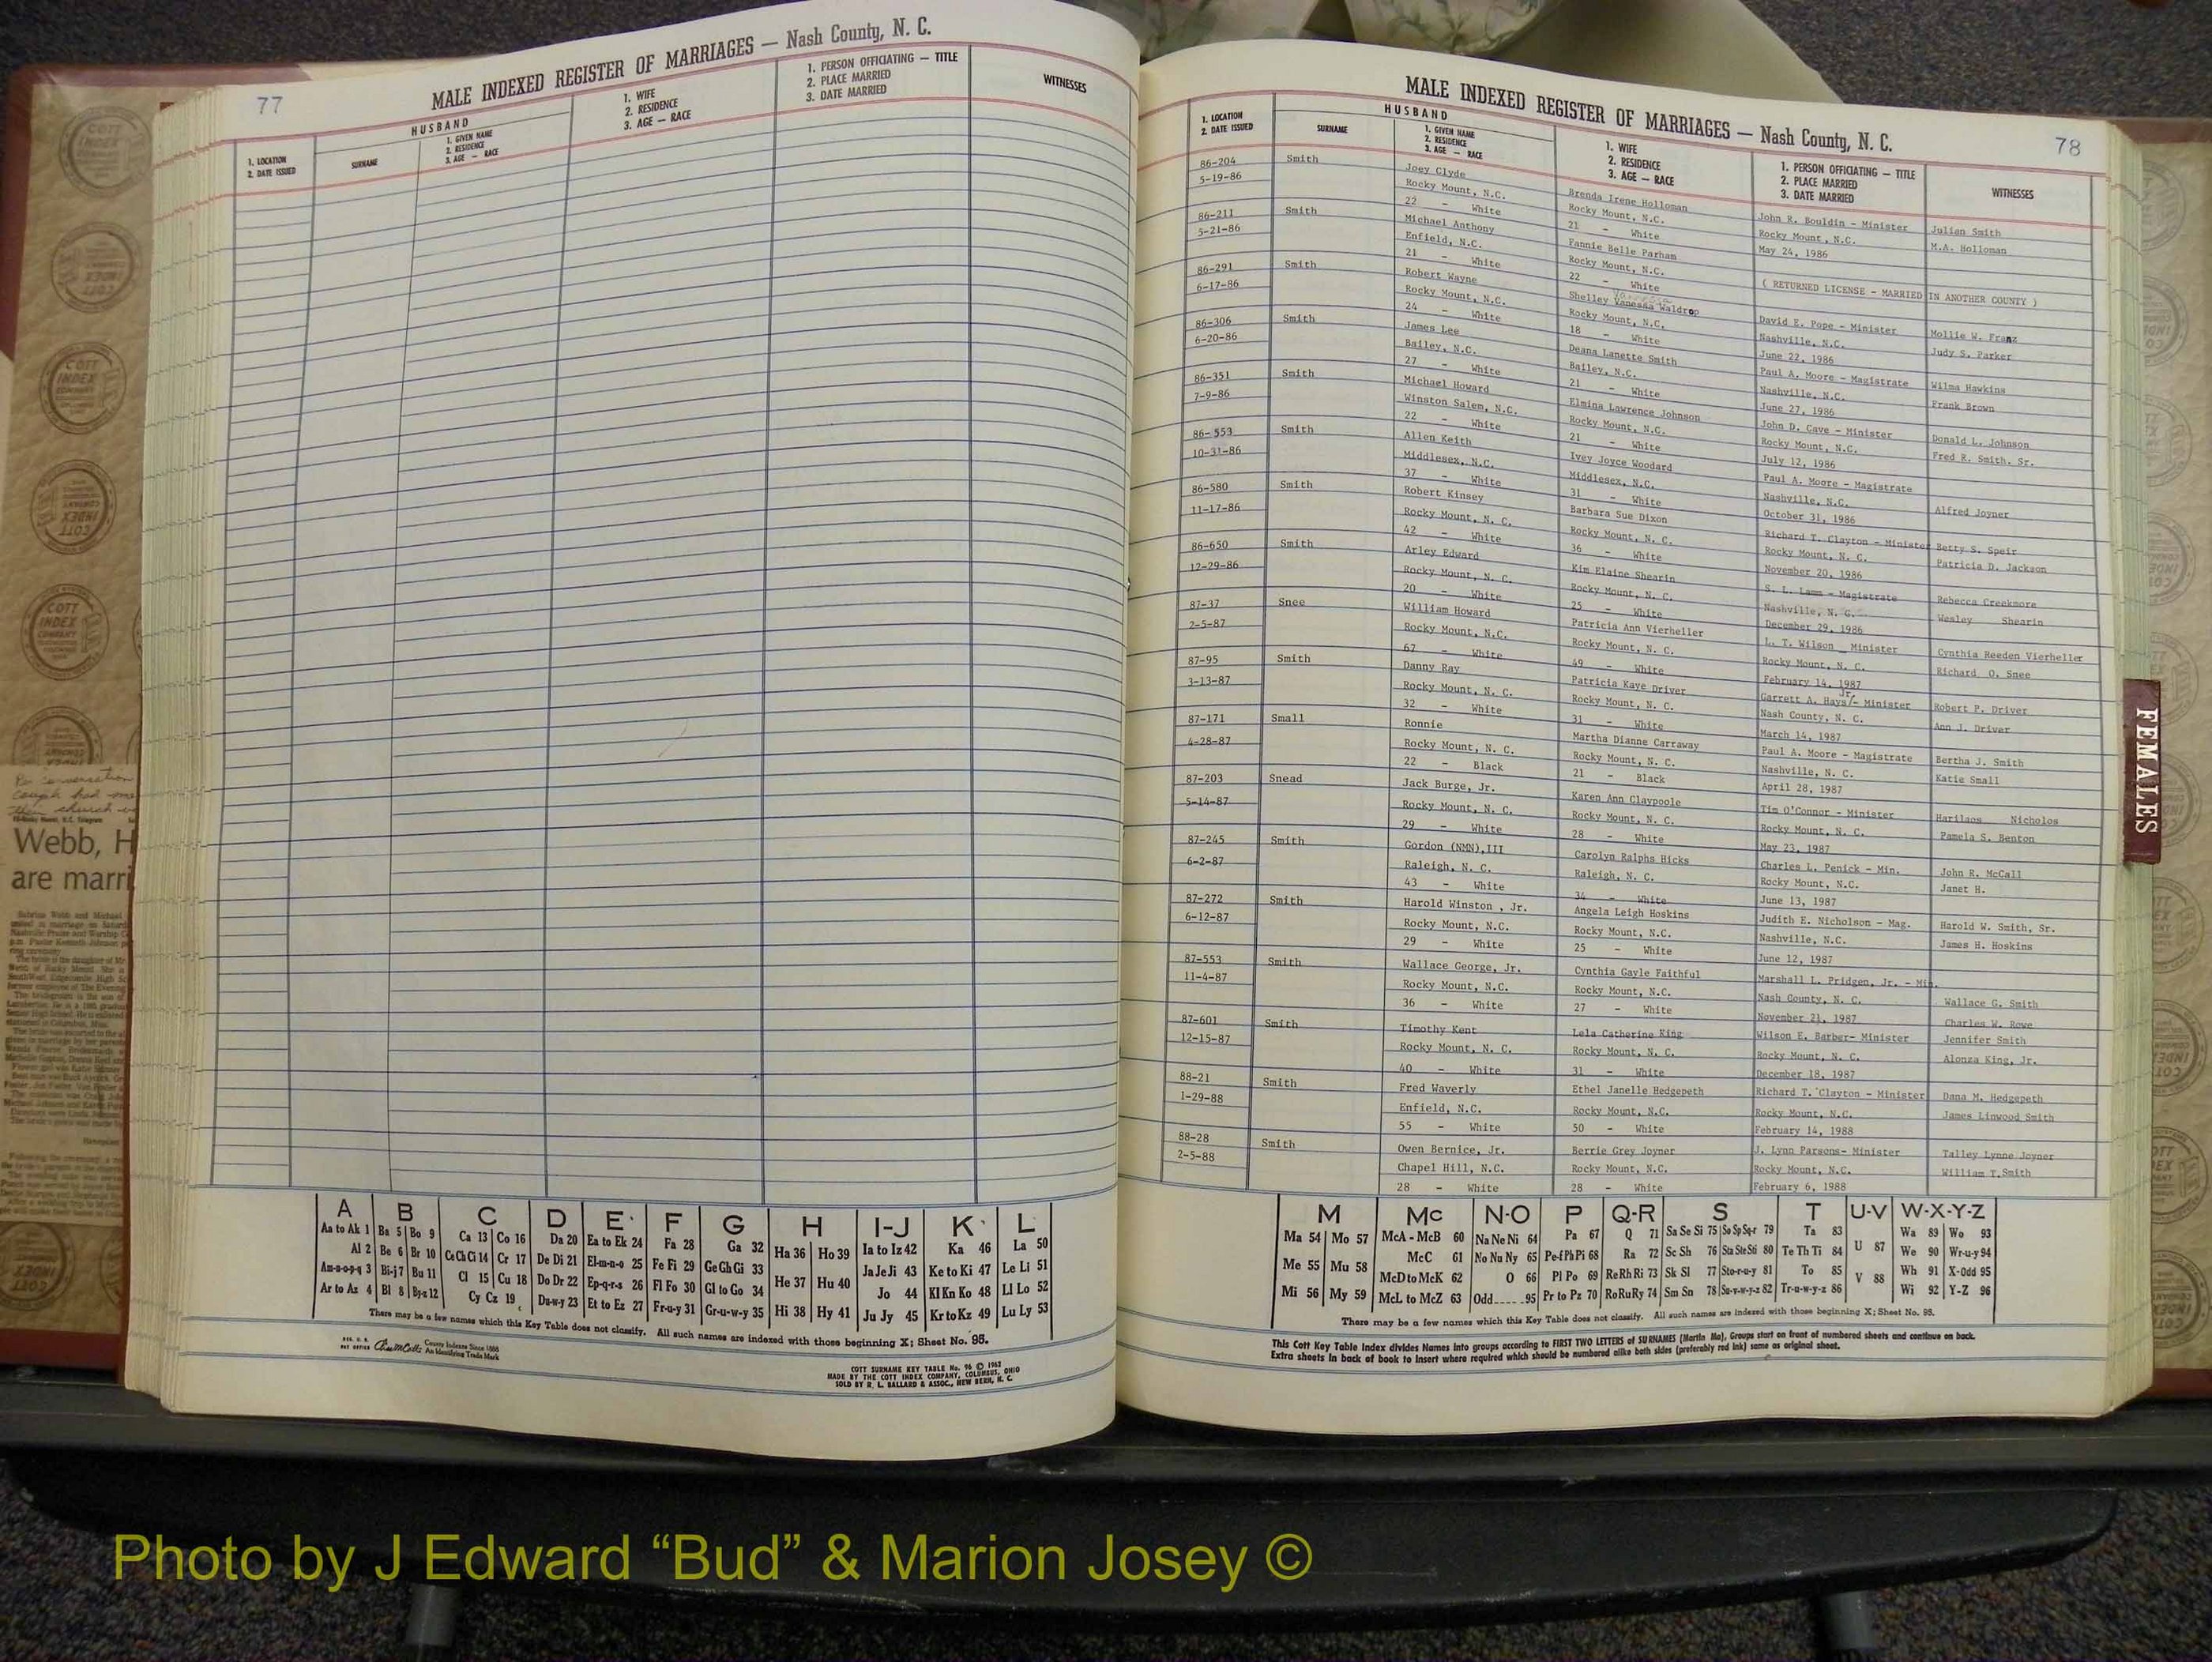 77
MALE INDEXED REGISTER OF MARRIAGES — Nash County, N. C.
1. LOCATION
2. DATE ISSUED
HUSBAND
SURNAME
1. GIVEN NAME
2. RESIDENCE
3. AGE — RACE
1. WIFE
2. RESIDENCE
3. AGE — RACE
1. PERSON OFFICIATING — TITLE
2. PLACE MARRIED
3. DATE MARRIED
WITNESSES
A B C D E F G H I-J K L
Aa to Ak 1 Ba 5 Bo 9 Ca 13 Co 16 Da 20 Ea to Ek 24 Fa 28 Ga 32 Ha 36 Ho 39 Ia to Iz 42 Ka 46 La 50
Al 2 Be 6 Br 10 Ce Ch Ci 14 Cr 17 De Di 21 El-m-n-o 25 Fe Fi 29 Ge Gh Gi 33 He 37 Hu 40 Ja Je Ji 43 Ke to Ki 47 Le Li 51
Am-n-o-p-q 3 Bi-j 7 Bu 11 Cl 15 Cu 18 Do Dr 22 Ep-q-r-s 26 Fl Fo 30 Gl to Go 34 Hi 38 Hy 41 Jo 44 Kl Kn Ko 48 Ll Lo 52
Ar to Az 4 Bl 8 By-z 12 Cy Cz 19 Du-w-y 23 Et to Ez 27 Fr-u-y 31 Gr-u-w-y 35 Ju Jy 45 Kr to Kz 49 Lu Ly 53
There may be a few names which this Key Table does not classify. All such names are indexed with those beginning X; Sheet No. 95.
County Indexes Since 1888
An Identifying Trade Mark
COTT SURNAME KEY TABLE No. 96 © 1962
MADE BY THE COTT INDEX COMPANY, COLUMBUS, OHIO
SOLD BY R. L. BALLARD & ASSOC., NEW BERN, N. C.
MALE INDEXED REGISTER OF MARRIAGES — Nash County, N. C.
78
1. LOCATION
2. DATE ISSUED
HUSBAND
SURNAME
1. GIVEN NAME
2. RESIDENCE
3. AGE — RACE
1. WIFE
2. RESIDENCE
3. AGE — RACE
1. PERSON OFFICIATING — TITLE
2. PLACE MARRIED
3. DATE MARRIED
WITNESSES
86-204 Smith Joey Clyde Brenda Irene Holloman John R. Bouldin - Minister Julian Smith
5-19-86 Rocky Mount, N.C. Rocky Mount, N.C. Rocky Mount, N.C. M.A. Holloman
22 - White 21 - White May 24, 1986
86-211 Smith Michael Anthony Fannie Belle Parham
5-21-86 Enfield, N.C. Rocky Mount, N.C. ( RETURNED LICENSE - MARRIED IN ANOTHER COUNTY )
21 - White 22 - White
86-291 Smith Robert Wayne Shelley Vanessa Waldrop David E. Pope - Minister Mollie W. Franz
6-17-86 Rocky Mount, N.C. Rocky Mount, N.C. Nashville, N.C. Judy S. Parker
24 - White 18 - White June 22, 1986
86-306 Smith James Lee Deana Lanette Smith Paul A. Moore - Magistrate Wilma Hawkins
6-20-86 Bailey, N.C. Bailey, N.C. Nashville, N.C. Frank Brown
27 - White 21 - White June 27, 1986
86-351 Smith Michael Howard Elmina Lawrence Johnson John D. Cave - Minister Donald L. Johnson
7-9-86 Winston Salem, N.C. Rocky Mount, N.C. Rocky Mount, N.C. Fred R. Smith. Sr.
22 - White 21 - White July 12, 1986
86-553 Smith Allen Keith Ivey Joyce Woodard Paul A. Moore - Magistrate
10-31-86 Middlesex, N.C. Middlesex, N.C. Nashville, N.C. Alfred Joyner
37 - White 31 - White October 31, 1986
86-580 Smith Robert Kinsey Barbara Sue Dixon Richard T. Clayton - Minister Betty S. Speir
11-17-86 Rocky Mount, N. C. Rocky Mount, N. C. Rocky Mount, N. C. Patricia D. Jackson
42 - White 36 - White November 20, 1986
86-650 Smith Arley Edward Kim Elaine Shearin S. L. Lamm - Magistrate Rebecca Creekmore
12-29-86 Rocky Mount, N. C. Rocky Mount, N. C. Nashville, N. C. Wesley Shearin
20 - White 25 - White December 29, 1986
87-37 Snee William Howard Patricia Ann Vierheller L. T. Wilson _ Minister Cynthia Reeden Vierheller
2-5-87 Rocky Mount, N.C. Rocky Mount, N. C. Rocky Mount, N. C. Richard O. Snee
67 - White 49 - White February 14, 1987
87-95 Smith Danny Ray Patricia Kaye Driver Garrett A. Hays/- Jr. Minister Robert P. Driver
3-13-87 Rocky Mount, N. C. Rocky Mount, N. C. Nash County, N. C. Ann J. Driver
32 - White 31 - White March 14, 1987
87-171 Small Ronnie Martha Dianne Carraway Paul A. Moore - Magistrate Bertha J. Smith
4-28-87 Rocky Mount, N. C. Rocky Mount, N. C. Nashville, N. C. Katie Small
22 - Black 21 - Black April 28, 1987
87-203 Snead Jack Burge, Jr. Karen Ann Claypoole Tim O'Connor - Minister Harilaos Nicholos
5-14-87 Rocky Mount, N. C. Rocky Mount, N. C. Rocky Mount, N. C. Pamela S. Benton
29 - White 28 - White May 23, 1987
87-245 Smith Gordon (NMN),III Carolyn Ralphs Hicks Charles L. Penick - Min. John R. McCall
6-2-87 Raleigh, N. C. Raleigh, N. C. Rocky Mount, N.C. Janet H.
43 - White 34 - White June 13, 1987
87-272 Smith Harold Winston , Jr. Angela Leigh Hoskins Judith E. Nicholson - Mag. Harold W. Smith, Sr.
6-12-87 Rocky Mount, N.C. Rocky Mount, N.C. Nashville, N.C. James H. Hoskins
29 - White 25 - White June 12, 1987
87-553 Smith Wallace George, Jr. Cynthia Gayle Faithful Marshall L. Pridgen, Jr. - Min.
11-4-87 Rocky Mount, N.C. Rocky Mount, N.C. Nash County, N. C. Wallace G. Smith
36 - White 27 - White November 21, 1987 Charles W. Rowe
87-601 Smith Timothy Kent Lela Catherine King Wilson E. Barber- Minister Jennifer Smith
12-15-87 Rocky Mount, N. C. Rocky Mount, N. C. Rocky Mount, N. C. Alonza King, Jr.
40 - White 31 - White December 18, 1987
88-21 Smith Fred Waverly Ethel Janelle Hedgepeth Richard T. Clayton - Minister Dana M. Hedgepeth
1-29-88 Enfield, N.C. Rocky Mount, N.C. Rocky Mount, N.C. James Linwood Smith
55 - White 50 - White February 14, 1988
88-28 Smith Owen Bernice, Jr. Berrie Grey Joyner J. Lynn Parsons- Minister Talley Lynne Joyner
2-5-88 Chapel Hill, N.C. Rocky Mount, N.C. Rocky Mount, N.C. William T. Smith
28 - White 28 - White February 6, 1988
M Mc N-O P Q-R S T U-V W-X-Y-Z
Ma 54 Mo 57 McA - McB 60 Na Ne Ni 64 Pa 67 Q 71 Sa Se Si 75 So Sp Sq-r 79 Ta 83 U 87 Wa 89 Wo 93
Me 55 Mu 58 McC 61 No Nu Ny 65 Pe-f Ph Pi 68 Ra 72 Sc Sh 76 Sta Ste Sti 80 Te Th Ti 84 V 88 We 90 Wr-u-y 94
Mi 56 My 59 McD to McK 62 O 66 Pl Po 69 Re Rh Ri 73 Sk Sl 77 Sto-r-u-y 81 To 85 Wh 91 X-Odd 95
McL to McZ 63 Odd 95 Pr to Pz 70 Ro Ru Ry 74 Sm Sn 78 Su-v-w-y-z 82 Tr-u-w-y-z 86 Wi 92 Y-Z 96
There may be a few names which this Key Table does not classify. All such names are indexed with those beginning X; Sheet No. 95.
This Cott Key Table Index divides Names into groups according to FIRST TWO LETTERS of SURNAMES (Martin Ma), Groups start on front of numbered sheets and continue on back.
Extra sheets in back of book to insert where required which should be numbered alike both sides (preferably red ink) same as original sheet.
FEMALES
Webb, H
are marri
Photo by J Edward “Bud” & Marion Josey ©